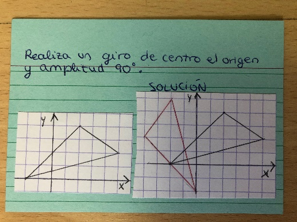 Realiza un giro de centro el origen
y amplitud 90°.
SOLUCIÓN
y
y
x
x